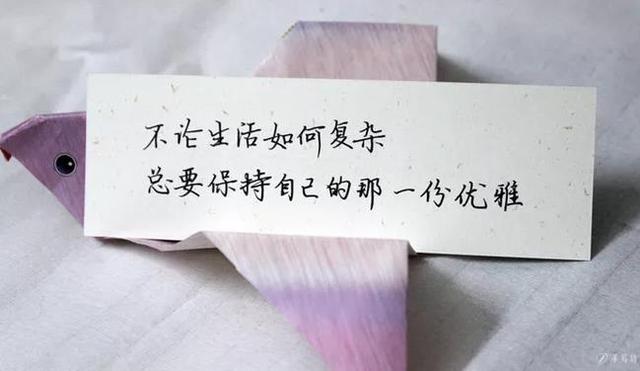 不论生活如何复杂
总要保持自己的那一份优雅